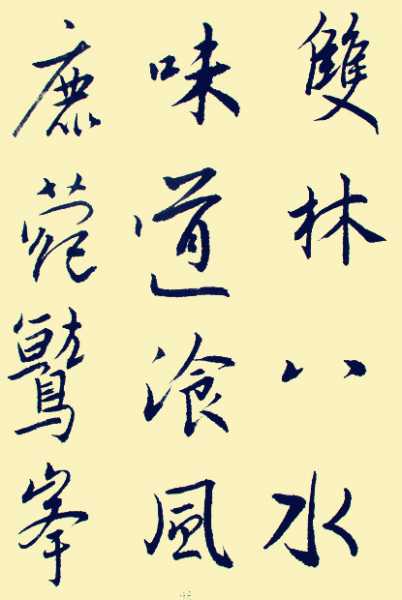 雙林八水
味道湌風
鹿菀鷲峯